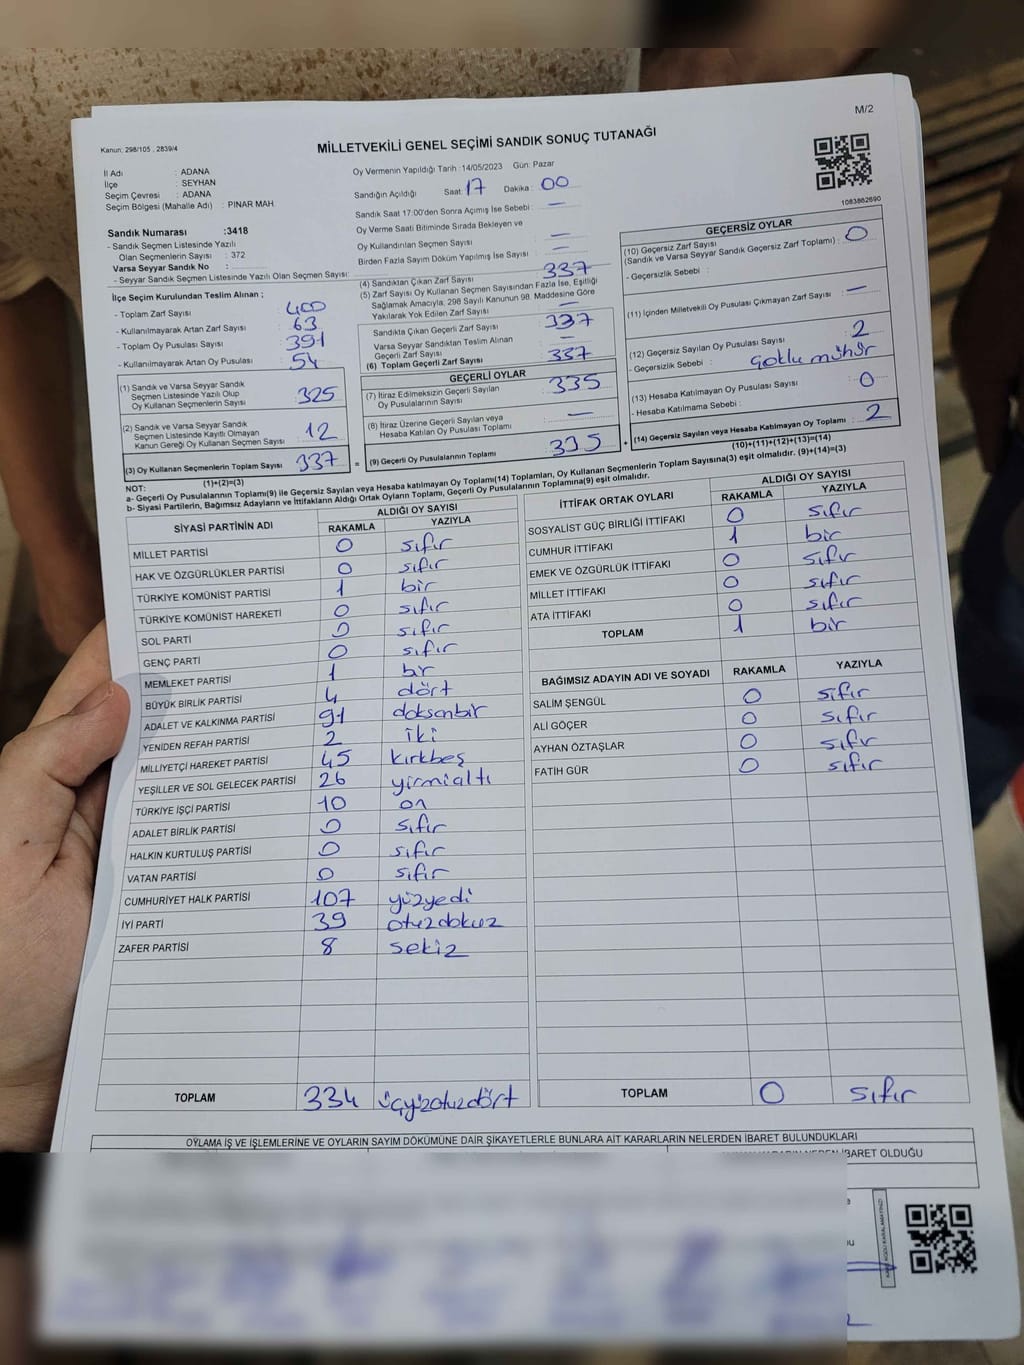 M/2
Kanun: 298/105 , 2839/4
MİLLETVEKİLİ GENEL SEÇİMİ SANDIK SONUÇ TUTANAĞI
1083862690
İl Adı : ADANA
İlçe : SEYHAN
Seçim Çevresi : ADANA
Seçim Bölgesi (Mahalle Adı) : PINAR MAH
Sandık Numarası :3418
- Sandık Seçmen Listesinde Yazılı
Olan Seçmenlerin Sayısı : 372
Varsa Seyyar Sandık No :
- Seyyar Sandık Seçmen Listesinde Yazılı Olan Seçmen Sayısı:
Oy Vermenin Yapıldığı Tarih :14/05/2023 Gün: Pazar
Sandığın Açıldığı Saat : 17 Dakika : 00
Sandık Saat 17:00'den Sonra Açımış İse Sebebi : —
Oy Verme Saati Bitiminde Sırada Bekleyen ve
Oy Kullandırılan Seçmen Sayısı : —
Birden Fazla Sayım Döküm Yapılmış İse Sayısı : —
İlçe Seçim Kurulundan Teslim Alınan ;
- Toplam Zarf Sayısı : 400
- Kullanılmayarak Artan Zarf Sayısı : 63
- Toplam Oy Pusulası Sayısı : 391
- Kullanılmayarak Artan Oy Pusulası : 54
(1) Sandık ve Varsa Seyyar Sandık
Seçmen Listesinde Yazılı Olup
Oy Kullanan Seçmenlerin Sayısı : 325
(2) Sandık ve Varsa Seyyar Sandık
Seçmen Listesinde Kayıtlı Olmayan
Kanun Gereği Oy Kullanan Seçmen Sayısı : 12
(3) Oy Kullanan Seçmenlerin Toplam Sayısı : 337
(1)+(2)=(3)
(4) Sandıktan Çıkan Zarf Sayısı : 337
(5) Zarf Sayısı Oy Kullanan Seçmen Sayısından Fazla İse, Eşitliği
Sağlamak Amacıyla, 298 Sayılı Kanunun 98. Maddesine Göre
Yakılarak Yok Edilen Zarf Sayısı : —
Sandıkta Çıkan Geçerli Zarf Sayısı : 337
Varsa Seyyar Sandıktan Teslim Alınan
Geçerli Zarf Sayısı : —
(6) Toplam Geçerli Zarf Sayısı : 337
GEÇERLİ OYLAR
(7) İtiraz Edilmeksizin Geçerli Sayılan
Oy Pusulalarının Sayısı : 335
(8) İtiraz Üzerine Geçerli Sayılan veya
Hesaba Katılan Oy Pusulası Toplamı : —
= (9) Geçerli Oy Pusulalarının Toplamı : 335 +
GEÇERSİZ OYLAR
(10) Geçersiz Zarf Sayısı
(Sandık ve Varsa Seyyar Sandık Geçersiz Zarf Toplamı) : 0
- Geçersizlik Sebebi :
(11) İçinden Milletvekili Oy Pusulası Çıkmayan Zarf Sayısı : —
(12) Geçersiz Sayılan Oy Pusulası Sayısı : 2
- Geçersizlik Sebebi : çoklu mühür
(13) Hesaba Katılmayan Oy Pusulası Sayısı : 0
- Hesaba Katılmama Sebebi :
(14) Geçersiz Sayılan veya Hesaba Katılmayan Oy Toplamı : 2
(10)+(11)+(12)+(13)=(14)
NOT:
a- Geçerli Oy Pusulalarının Toplamı(9) ile Geçersiz Sayılan veya Hesaba katılmayan Oy Toplamı(14) Toplamları, Oy Kullanan Seçmenlerin Toplam Sayısına(3) eşit olmalıdır. (9)+(14)=(3)
b- Siyasi Partilerin, Bağımsız Adayların ve İttifakların Aldığı Ortak Oyların Toplamı, Geçerli Oy Pusulalarının Toplamına(9) eşit olmalıdır.
SİYASİ PARTİNİN ADI ALDIĞI OY SAYISI
RAKAMLA YAZIYLA
MİLLET PARTİSİ 0 sıfır
HAK VE ÖZGÜRLÜKLER PARTİSİ 0 sıfır
TÜRKİYE KOMÜNİST PARTİSİ 1 bir
TÜRKİYE KOMÜNİST HAREKETİ 0 sıfır
SOL PARTİ 0 sıfır
GENÇ PARTİ 0 sıfır
MEMLEKET PARTİSİ 1 bir
BÜYÜK BİRLİK PARTİSİ 4 dört
ADALET VE KALKINMA PARTİSİ 91 doksanbir
YENİDEN REFAH PARTİSİ 2 iki
MİLLİYETÇİ HAREKET PARTİSİ 45 kırkbeş
YEŞİLLER VE SOL GELECEK PARTİSİ 26 yirmialtı
TÜRKİYE İŞÇİ PARTİSİ 10 on
ADALET BİRLİK PARTİSİ 0 sıfır
HALKIN KURTULUŞ PARTİSİ 0 sıfır
VATAN PARTİSİ 0 sıfır
CUMHURİYET HALK PARTİSİ 107 yüzyedi
İYİ PARTİ 39 otuzdokuz
ZAFER PARTİSİ 8 sekiz
TOPLAM 334 üçyüzotuzdört
İTTİFAK ORTAK OYLARI ALDIĞI OY SAYISI
RAKAMLA YAZIYLA
SOSYALİST GÜÇ BİRLİĞİ İTTİFAKI 0 sıfır
CUMHUR İTTİFAKI 1 bir
EMEK VE ÖZGÜRLÜK İTTİFAKI 0 sıfır
MİLLET İTTİFAKI 0 sıfır
ATA İTTİFAKI 0 sıfır
TOPLAM 1 bir
BAĞIMSIZ ADAYIN ADI VE SOYADI RAKAMLA YAZIYLA
SALİM ŞENGÜL 0 sıfır
ALİ GÖÇER 0 sıfır
AYHAN ÖZTAŞLAR 0 sıfır
FATİH GÜR 0 sıfır
TOPLAM 0 sıfır
OYLAMA İŞ VE İŞLEMLERİNE VE OYLARIN SAYIM DÖKÜMÜNE DAİR ŞİKAYETLERLE BUNLARA AİT KARARLARIN NELERDEN İBARET BULUNDUKLARI
İBARET OLDUĞU